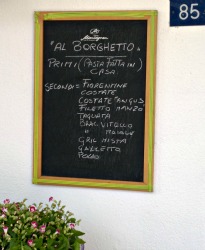 85
"AL BORGHETTO"
PRIMI (PASTA FATTA IN)
CASA
SECONDI = FIORENTINE
COSTATE
COSTATE ANGUS
FILETTO MANZO
TAGLIATA
BRAC. VITELLO
" MAIALE
GRIG. MISTA
GALLETTO
POLLO